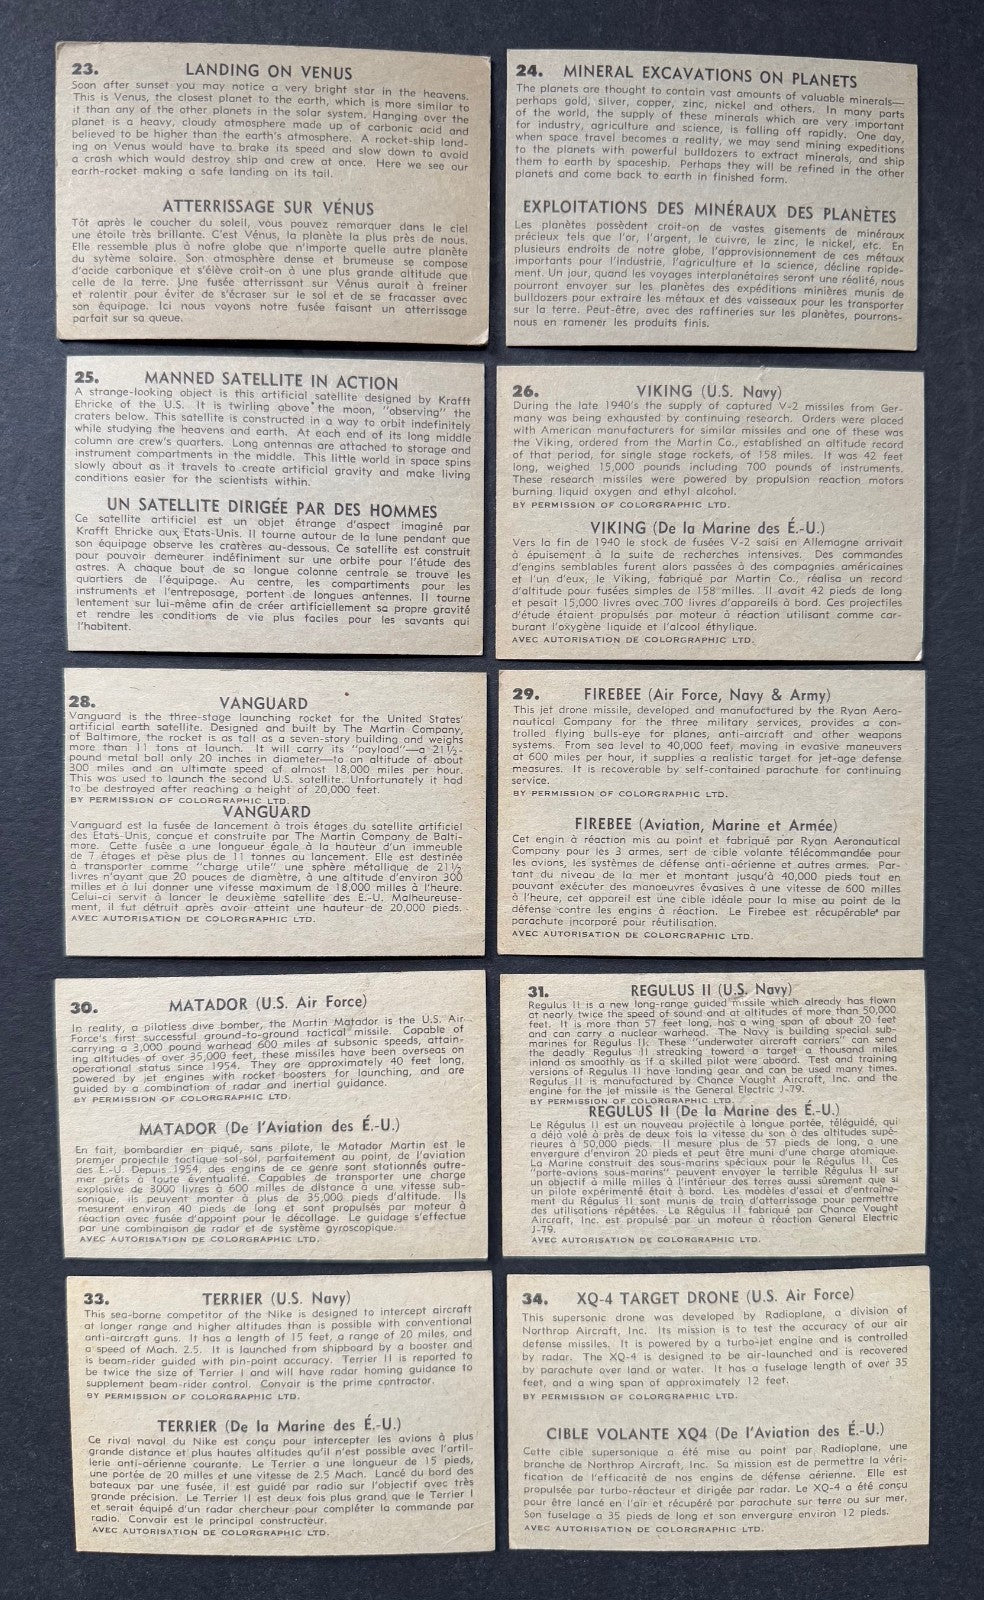 23. LANDING ON VENUS
Soon after sunset you may notice a very bright star in the heavens.
This is Venus, the closest planet to the earth, which is more similar to
it than any of the other planets in the solar system. Hanging over the
planet is a heavy, cloudy atmosphere made up of carbonic acid and
believed to be higher than the earth's atmosphere. A rocket-ship land-
ing on Venus would have to brake its speed and slow down to avoid
a crash which would destroy ship and crew at once. Here we see our
earth-rocket making a safe landing on its tail.
ATTERRISSAGE SUR VÉNUS
Tôt après le coucher du soleil, vous pouvez remarquer dans le ciel
une étoile très brillante. C'est Vénus, la planète la plus près de nous.
Elle ressemble plus à notre globe que n'importe quelle autre planète
du sytème solaire. Son atmosphère dense et brumeuse se compose
d'acide carbonique et s'élève croit-on à une plus grande altitude que
celle de la terre. Une fusée atterrissant sur Vénus aurait à freiner
et ralentir pour éviter de s'écraser sur le sol et de se fracasser avec
son équipage. Ici nous voyons notre fusée faisant un atterrissage
parfait sur sa queue.
24. MINERAL EXCAVATIONS ON PLANETS
The planets are thought to contain vast amounts of valuable minerals—
perhaps gold, silver, copper, zinc, nickel and others. In many parts
of the world, the supply of these minerals which are very important
for industry, agriculture and science, is falling off rapidly. One day,
when space travel becomes a reality, we may send mining expeditions
to the planets with powerful bulldozers to extract minerals, and ship
them to earth by spaceship. Perhaps they will be refined in the other
planets and come back to earth in finished form.
EXPLOITATIONS DES MINÉRAUX DES PLANÈTES
Les planètes possèdent croit-on de vastes gisements de minéraux
précieux tels que l'or, l'argent, le cuivre, le zinc, le nickel, etc. En
plusieurs endroits de notre globe, l'approvisionnement de ces métaux
importants pour l'industrie, l'agriculture et la science, décline rapide-
ment. Un jour, quand les voyages interplanétaires seront une réalité, nous
pourront envoyer sur les planètes des expéditions minières munis de
bulldozers pour extraire les métaux et des vaisseaux pour les transporter
sur la terre. Peut-être, avec des raffineries sur les planètes, pourrons-
nous en ramener les produits finis.
25. MANNED SATELLITE IN ACTION
A strange-looking object is this artificial satellite designed by Krafft
Ehricke of the U.S. It is twirling above the moon, "observing" the
craters below. This satellite is constructed in a way to orbit indefinitely
while studying the heavens and earth. At each end of its long middle
column are crew's quarters. Long antennas are attached to storage and
instrument compartments in the middle. This little world in space spins
slowly about as it travels to create artificial gravity and make living
conditions easier for the scientists within.
UN SATELLITE DIRIGÉE PAR DES HOMMES
Ce satellite artificiel est un objet étrange d'aspect imaginé par
Krafft Ehricke aux Etats-Unis. Il tourne autour de la lune pendant que
son équipage observe les cratères au-dessous. Ce satellite est construit
pour pouvoir demeurer indéfiniment sur une orbite pour l'étude des
astres. A chaque bout de sa longue colonne centrale se trouve les
quartiers de l'équipage. Au centre, les compartiments pour les
instruments et l'entreposage, portent de longues antennes. Il tourne
lentement sur lui-même afin de créer artificiellement sa propre gravité
et rendre les conditions de vie plus faciles pour les savants qui
l'habitent.
26. VIKING (U.S. Navy)
During the late 1940's the supply of captured V-2 missiles from Ger-
many was being exhausted by continuing research. Orders were placed
with American manufacturers for similar missiles and one of these was
the Viking, ordered from the Martin Co., established an altitude record
of that period, for single stage rockets, of 158 miles. It was 42 feet
long, weighed 15,000 pounds including 700 pounds of instruments.
These research missiles were powered by propulsion reaction motors
burning liquid oxygen and ethyl alcohol.
BY PERMISSION OF COLORGRAPHIC LTD.
VIKING (De la Marine des É.-U.)
Vers la fin de 1940 le stock de fusées V-2 saisi en Allemagne arrivait
à épuisement à la suite de recherches intensives. Des commandes
d'engins semblables furent alors passées à des compagnies américaines
et l'un d'eux, le Viking, fabriqué par Martin Co., réalisa un record
d'altitude pour fusées simples de 158 milles. Il avait 42 pieds de long
et pesait 15,000 livres avec 700 livres d'appareils à bord. Ces projectiles
d'étude étaient propulsés par moteur à réaction utilisant comme car-
burant l'oxygène liquide et l'alcool éthylique.
AVEC AUTORISATION DE COLORGRAPHIC LTD.
28. VANGUARD
Vanguard is the three-stage launching rocket for the United States'
artificial earth satellite. Designed and built by The Martin Company,
of Baltimore, the rocket is as tall as a seven-story building and weighs
more than 11 tons at launch. It will carry its "payload"—a 21½-
pound metal ball only 20 inches in diameter—to an altitude of about
300 miles and an ultimate speed of almost 18,000 miles per hour.
This was used to launch the second U.S. satellite. Unfortunately it had
to be destroyed after reaching a height of 20,000 feet.
BY PERMISSION OF COLORGRAPHIC LTD.
VANGUARD
Vanguard est la fusée de lancement à trois étages du satellite artificiel
des Etats-Unis, conçue et construite par The Martin Company de Balti-
more. Cette fusée a une longueur égale à la hauteur d'un immeuble
de 7 étages et pèse plus de 11 tonnes au lancement. Elle est destinée
à transporter comme "charge utile" une sphère métallique de 21½
livres n'ayant que 20 pouces de diamètre, à une altitude d'environ 300
milles et à lui donner une vitesse maximum de 18,000 milles à l'heure.
Celui-ci servit à lancer le deuxième satellite des E.-U. Malheureuse-
ment, il fut détruit après avoir atteint une hauteur de 20,000 pieds.
AVEC AUTORISATION DE COLORGRAPHIC LTD.
29. FIREBEE (Air Force, Navy & Army)
This jet drone missile, developed and manufactured by the Ryan Aero-
nautical Company for the three military services, provides a con-
trolled flying bulls-eye for planes, anti-aircraft and other weapons
systems. From sea level to 40,000 feet, moving in evasive maneuvers
at 600 miles per hour, it supplies a realistic target for jet-age defense
measures. It is recoverable by self-contained parachute for continuing
service.
BY PERMISSION OF COLORGRAPHIC LTD.
FIREBEE (Aviation, Marine et Armée)
Cet engin à réaction mis au point et fabriqué par Ryan Aeronautical
Company pour les 3 armes, sert de cible volante télécommandée pour
les avions, les systèmes de défense anti-aérienne et autres armes. Par-
tant du niveau de la mer et montant jusqu'à 40,000 pieds tout en
pouvant exécuter des manoeuvres évasives à une vitesse de 600 milles
à l'heure, cet appareil est une cible idéale pour la mise au point de la
défense contre les engins à réaction. Le Firebee est récupérable par
parachute incorporé pour réutilisation.
AVEC AUTORISATION DE COLORGRAPHIC LTD.
30. MATADOR (U.S. Air Force)
In reality, a pilotless dive bomber, the Martin Matador is the U.S. Air
Force's first successful ground-to-ground tactical missile. Capable of
carrying a 3,000 pound warhead 600 miles at subsonic speeds, attain-
ing altitudes of over 35,000 feet, these missiles have been overseas on
operational status since 1954. They are approximately 40 feet long,
powered by jet engines with rocket boosters for launching, and are
guided by a combination of radar and inertial guidance.
BY PERMISSION OF COLORGRAPHIC LTD.
MATADOR (De l'Aviation des É.-U.)
En fait, bombardier en piqué, sans pilote, le Matador Martin est le
premier projectile tactique sol-sol, parfaitement au point, de l'aviation
des E.-U. Depuis 1954, des engins de ce genre sont stationnés outre-
mer prêts à toute éventualité. Capables de transporter une charge
explosive de 3000 livres à 600 milles de distance à une vitesse sub-
sonique, ils peuvent monter à plus de 35,000 pieds d'altitude. Ils
mesurent environ 40 pieds de long et sont propulsés par moteur à
réaction avec fusée d'appoint pour le décollage. Le guidage s'effectue
par une combinaison de radar et de système gyroscopique.
AVEC AUTORISATION DE COLORGRAPHIC LTD.
31. REGULUS II (U.S. Navy)
Regulus II is a new long-range guided missile which already has flown
at nearly twice the speed of sound and at altitudes of more than 50,000
feet. It is more than 57 feet long, has a wing span of about 20 feet
and can carry a nuclear warhead. The Navy is building special sub-
marines for Regulus II. These "underwater aircraft carriers" can send
the deadly Regulus II streaking toward a target a thousand miles
inland as smoothly as if a skilled pilot were aboard. Test and training
versions of Regulus II have landing gear and can be used many times.
Regulus II is manufactured by Chance Vought Aircraft, Inc. and the
engine for the jet missile is the General Electric J-79.
BY PERMISSION OF COLORGRAPHIC LTD.
REGULUS II (De la Marine des É.-U.)
Le Régulus II est un nouveau projectile à longue portée, téléguidé, qui
a déjà volé à près de deux fois la vitesse du son à des altitudes supé-
rieures à 50,000 pieds. Il mesure plus de 57 pieds de long, a une
envergure d'environ 20 pieds et peut être muni d'une charge atomique.
La Marine construit des sous-marins spéciaux pour le Régulus II. Ces
"porte-avions sous-marins" peuvent envoyer le terrible Régulus II sur
un objectif à mille milles à l'intérieur des terres aussi sûrement que si
un pilote expérimenté était à bord. Les modèles d'essai et d'entraîne-
ment du Régulus II sont munis de train d'atterrissage pour permettre
des utilisations répétées. Le Régulus II fabriqué par Chance Vought
Aircraft, Inc. est propulsé par un moteur à réaction General Electric
J-79.
AVEC AUTORISATION DE COLORGRAPHIC LTD.
33. TERRIER (U.S. Navy)
This sea-borne competitor of the Nike is designed to intercept aircraft
at longer range and higher altitudes than is possible with conventional
anti-aircraft guns. It has a length of 15 feet, a range of 20 miles, and
a speed of Mach. 2.5. It is launched from shipboard by a booster and
is beam-rider guided with pin-point accuracy. Terrier II is reported to
be twice the size of Terrier I and will have radar homing guidance to
supplement beam-rider control. Convair is the prime contractor.
BY PERMISSION OF COLORGRAPHIC LTD.
TERRIER (De la Marine des É.-U.)
Ce rival naval du Nike est conçu pour intercepter les avions à plus
grande distance et plus hautes altitudes qu'il n'est possible avec l'artil-
lerie anti-aérienne courante. Le Terrier a une longueur de 15 pieds,
une portée de 20 milles et une vitesse de 2.5 Mach. Lancé du bord des
bateaux par une fusée, il est guidé par radio sur l'objectif avec très
grande précision. Le Terrier II est deux fois plus grand que le Terrier I
et serait équipé d'un radar chercheur pour compléter la commande par
radio. Convair est le principal constructeur.
AVEC AUTORISATION DE COLORGRAPHIC LTD.
34. XQ-4 TARGET DRONE (U.S. Air Force)
This supersonic drone was developed by Radioplane, a division of
Northrop Aircraft, Inc. Its mission is to test the accuracy of our air
defense missiles. It is powered by a turbo-jet engine and is controlled
by radar. The XQ-4 is designed to be air-launched and is recovered
by parachute over land or water. It has a fuselage length of over 35
feet, and a wing span of approximately 12 feet.
BY PERMISSION OF COLORGRAPHIC LTD.
CIBLE VOLANTE XQ4 (De l'Aviation des É.-U.)
Cette cible supersonique a été mise au point par Radioplane, une
branche de Northrop Aircraft, Inc. Sa mission est de permettre la véri-
fication de l'efficacité de nos engins de défense aérienne. Elle est
propulsée par turbo-réacteur et dirigée par radar. Le XQ-4 a été conçu
pour être lancé en l'air et récupéré par parachute sur terre ou sur mer.
Son fuselage a 35 pieds de long et son envergure environ 12 pieds.
AVEC AUTORISATION DE COLORGRAPHIC LTD.